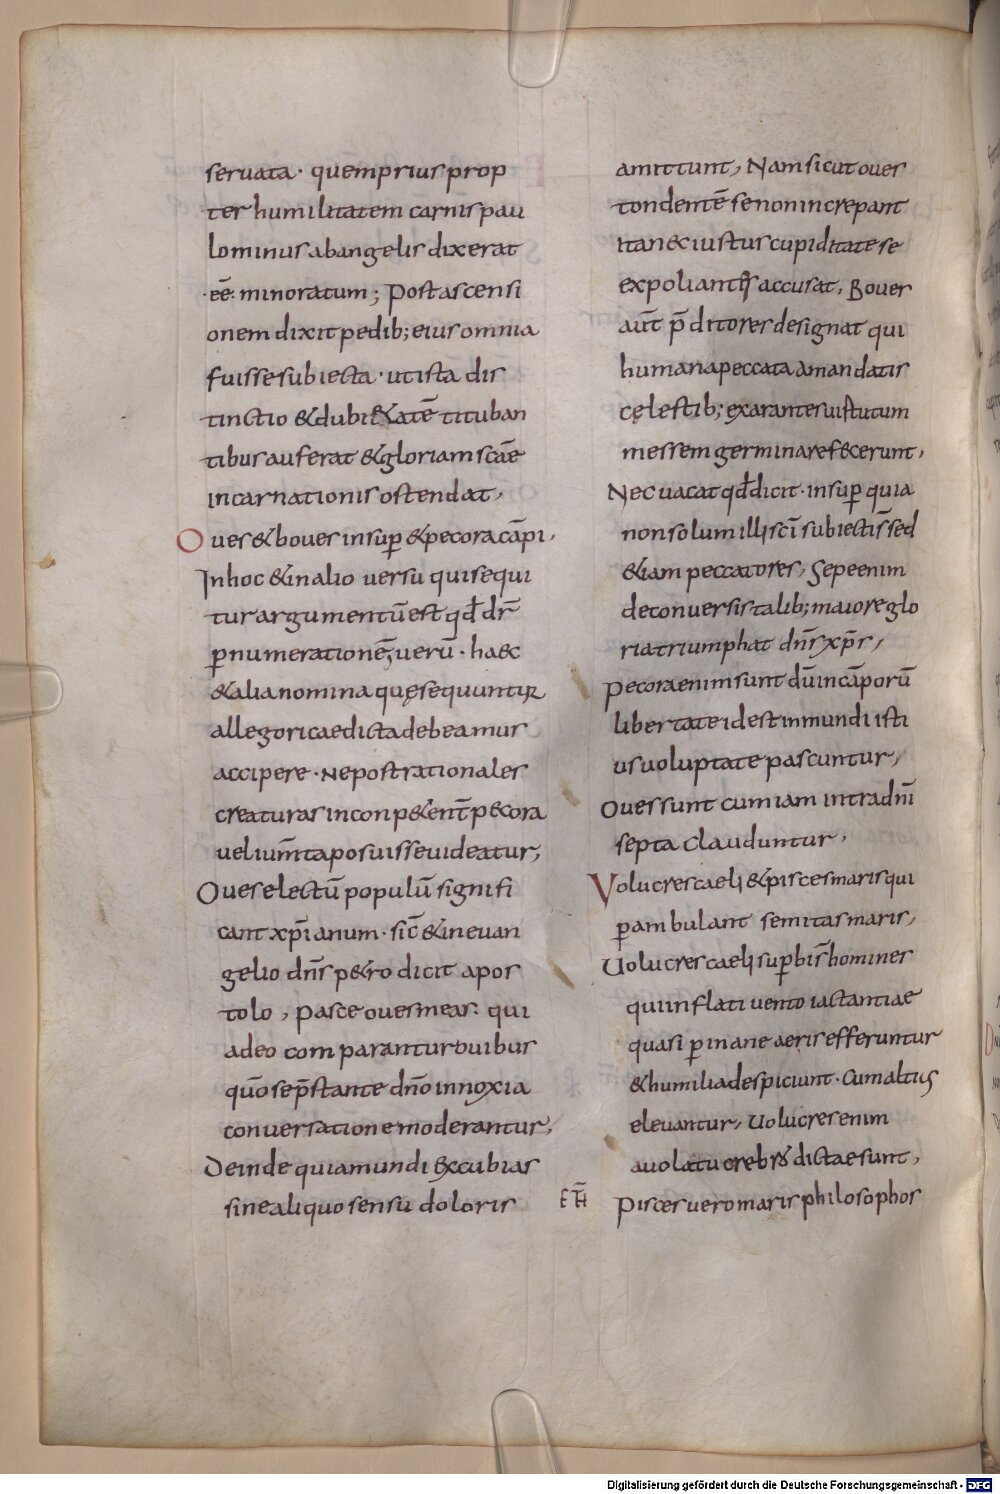 seruata · quem prius prop
ter humilitatem carnis pau
lo minus ab angelis dixerat
·eē· minoratum ; Post ascensi
onem dixit pedib; eius omnia
fuisse subiecta · ut ista dis
tinctio & dubi&atē tituban
tibus auferat & gloriam sc̄ae
incarnationis ostendat,
Oues & boues insup̲ & pecora cāpi,
In hoc & in alio uersu qui sequi
tur argumentū est qđ dr̄
p̲ numerationē; uerū · haec
& alia nomina quę sequuntur
allegoricae dicta debeamus
accipere · Ne post rationales
creaturas inconp&ent̄ p&cora
uel ium̄ta posuisse uideatur;
Oues electū populū signifi
cant xp̄ianum · sic̄ & in euan
gelio dn̄s p&ro dicit apos
tolo , Pasce oues meas: qui
adeo comparantur ouibus
quō se p̄stante dn̄o innoxia
conuersatione moderantur,
Deinde quia mundi excubias
sine aliquo sensu doloris
amittunt, Nam sicut oues
tondentē se non increpant
ita n& iustus cupiditate se
expoliantis accusat, Boues
aūt p̄ditores designat qui
humana peccata a mandatis
cęlestib; exarantes uistutum
messem germinare f&cerunt,
Nec uacat qđ dicit · insup̲ quia
non solum illi sc̄i subiecti s̄ sed
&iam peccatores, Sepe enim
de conuersis talib; maiore glo
ria triumphat dn̄s xp̄s,
Pecora enim sunt dū in cāporū
libertate id est in mundi isti
us uoluptate pascuntur,
Oues sunt cum iam intra dn̄i
septa clauduntur,
Volucres caeli & pisces maris qui
p̲ambulant semitas maris,
Uolucres caeli sup̲bis̄ homines
qui inflati uento iactantiae
quasi p̲ inane aeris efferuntur
& humilia despiciunt · Cum altius
eleuantur, Uolucres enim
a uolatu crebro dictae sunt,
Pisces uero maris philosophos